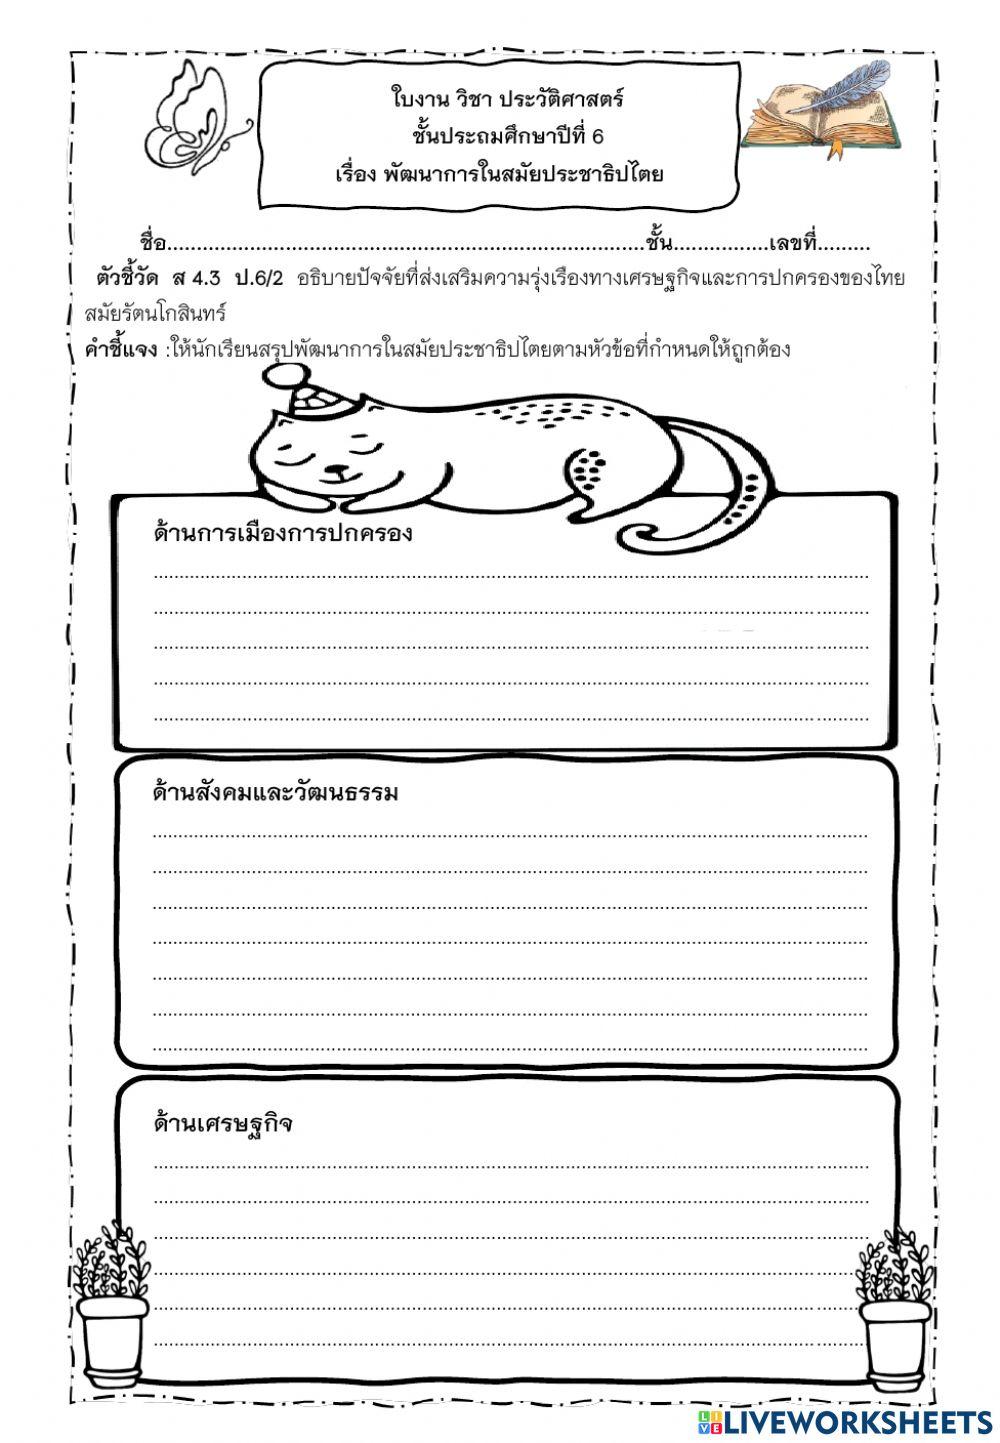 ใบงาน วิชา ประวัติศาสตร์
ชั้นประถมศึกษาปีที่ 6
เรื่อง พัฒนาการในสมัยประชาธิปไตย
ชื่อ................................................................................ชั้น................เลขที่.........
ตัวชี้วัด ส 4.3 ป.6/2 อธิบายปัจจัยที่ส่งเสริมความรุ่งเรืองทางเศรษฐกิจและการปกครองของไทย
สมัยรัตนโกสินทร์
คำชี้แจง :ให้นักเรียนสรุปพัฒนาการในสมัยประชาธิปไตยตามหัวข้อที่กำหนดให้ถูกต้อง
ด้านการเมืองการปกครอง
ด้านสังคมและวัฒนธรรม
ด้านเศรษฐกิจ
LIVEWORKSHEETS